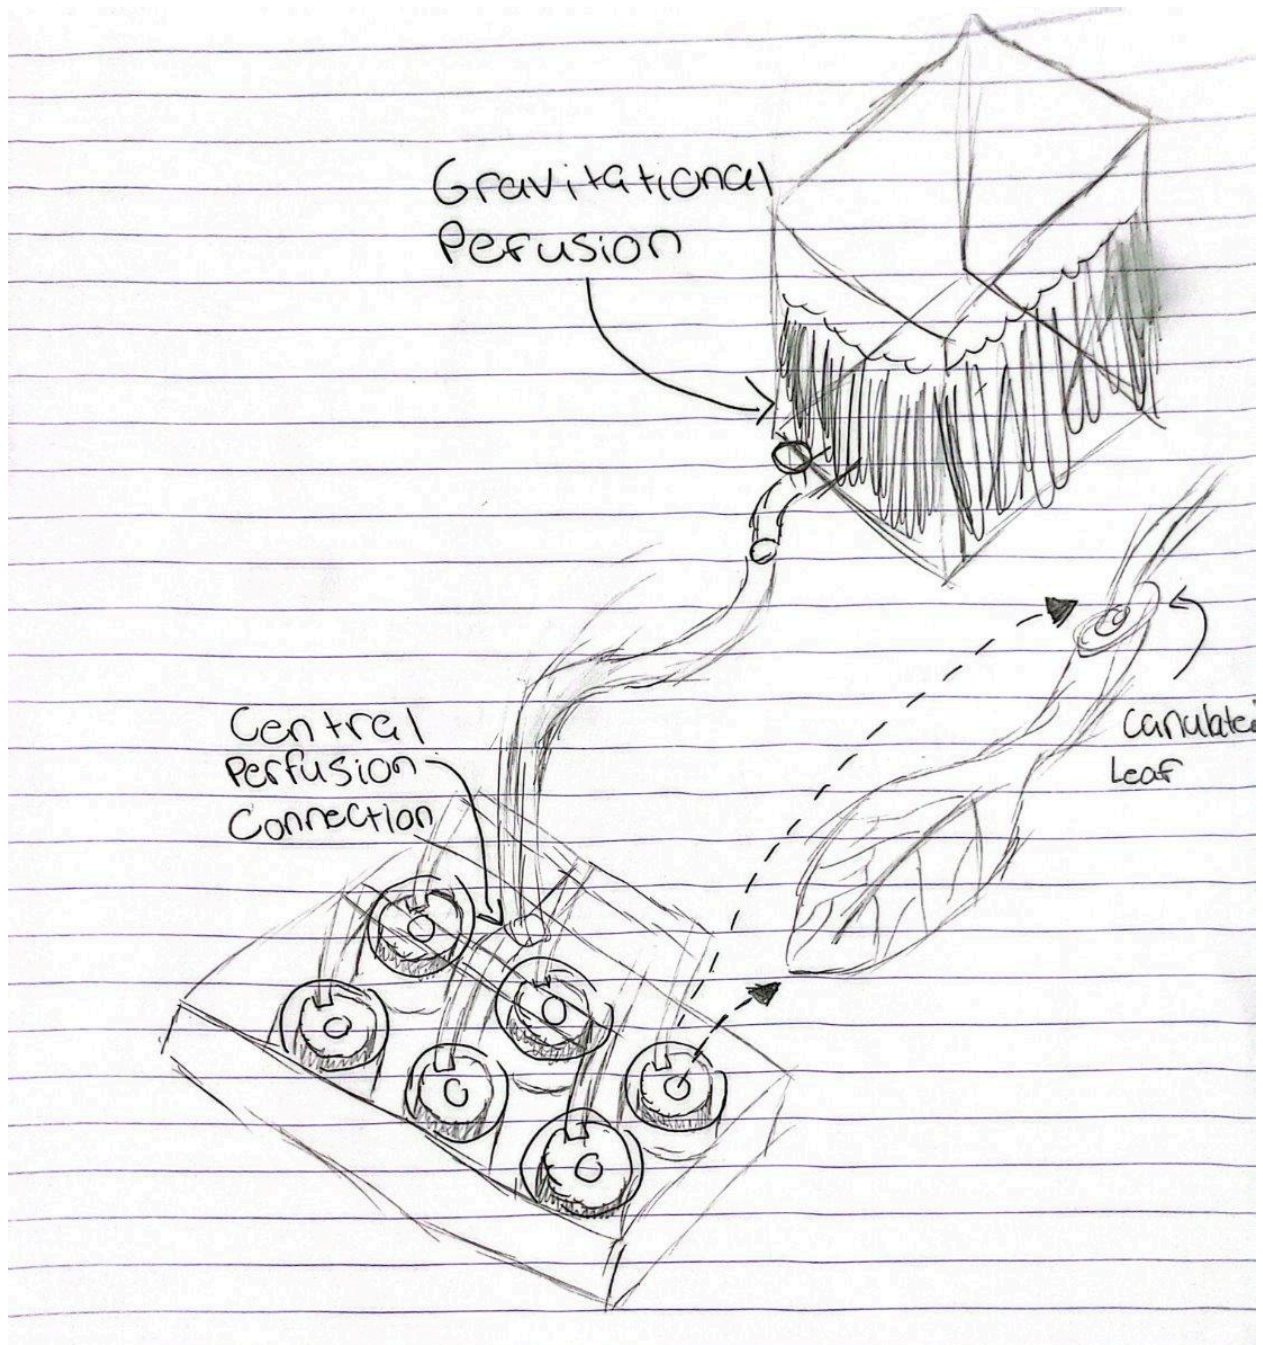 Gravitational
Pefusion
Central
Perfusion
Connection
Canulated
Leaf